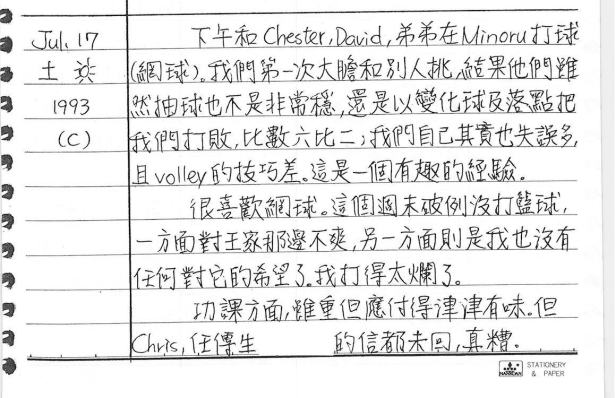 Jul. 17
土
1993
(C)
下午和Chester, David, 弟弟在Minoru打球
(網球)。我們第一次大膽和別人挑,結果他們雖
然抽球也不是非常穩,還是以變化球及落點把
我們打敗,比數六比二;我們自己其實也失誤多,
且volley的技巧差。這是一個有趣的經驗。
很喜歡網球。這個週末破例沒打籃球,
一方面對王家那邊不爽,另一方面則是我也沒有
任何對它的希望了。我打得太爛了。
功課方面,雖重但應付得津津有味。但
Chris, 任傳生 的信都未回,真糟。
STATIONERY
& PAPER